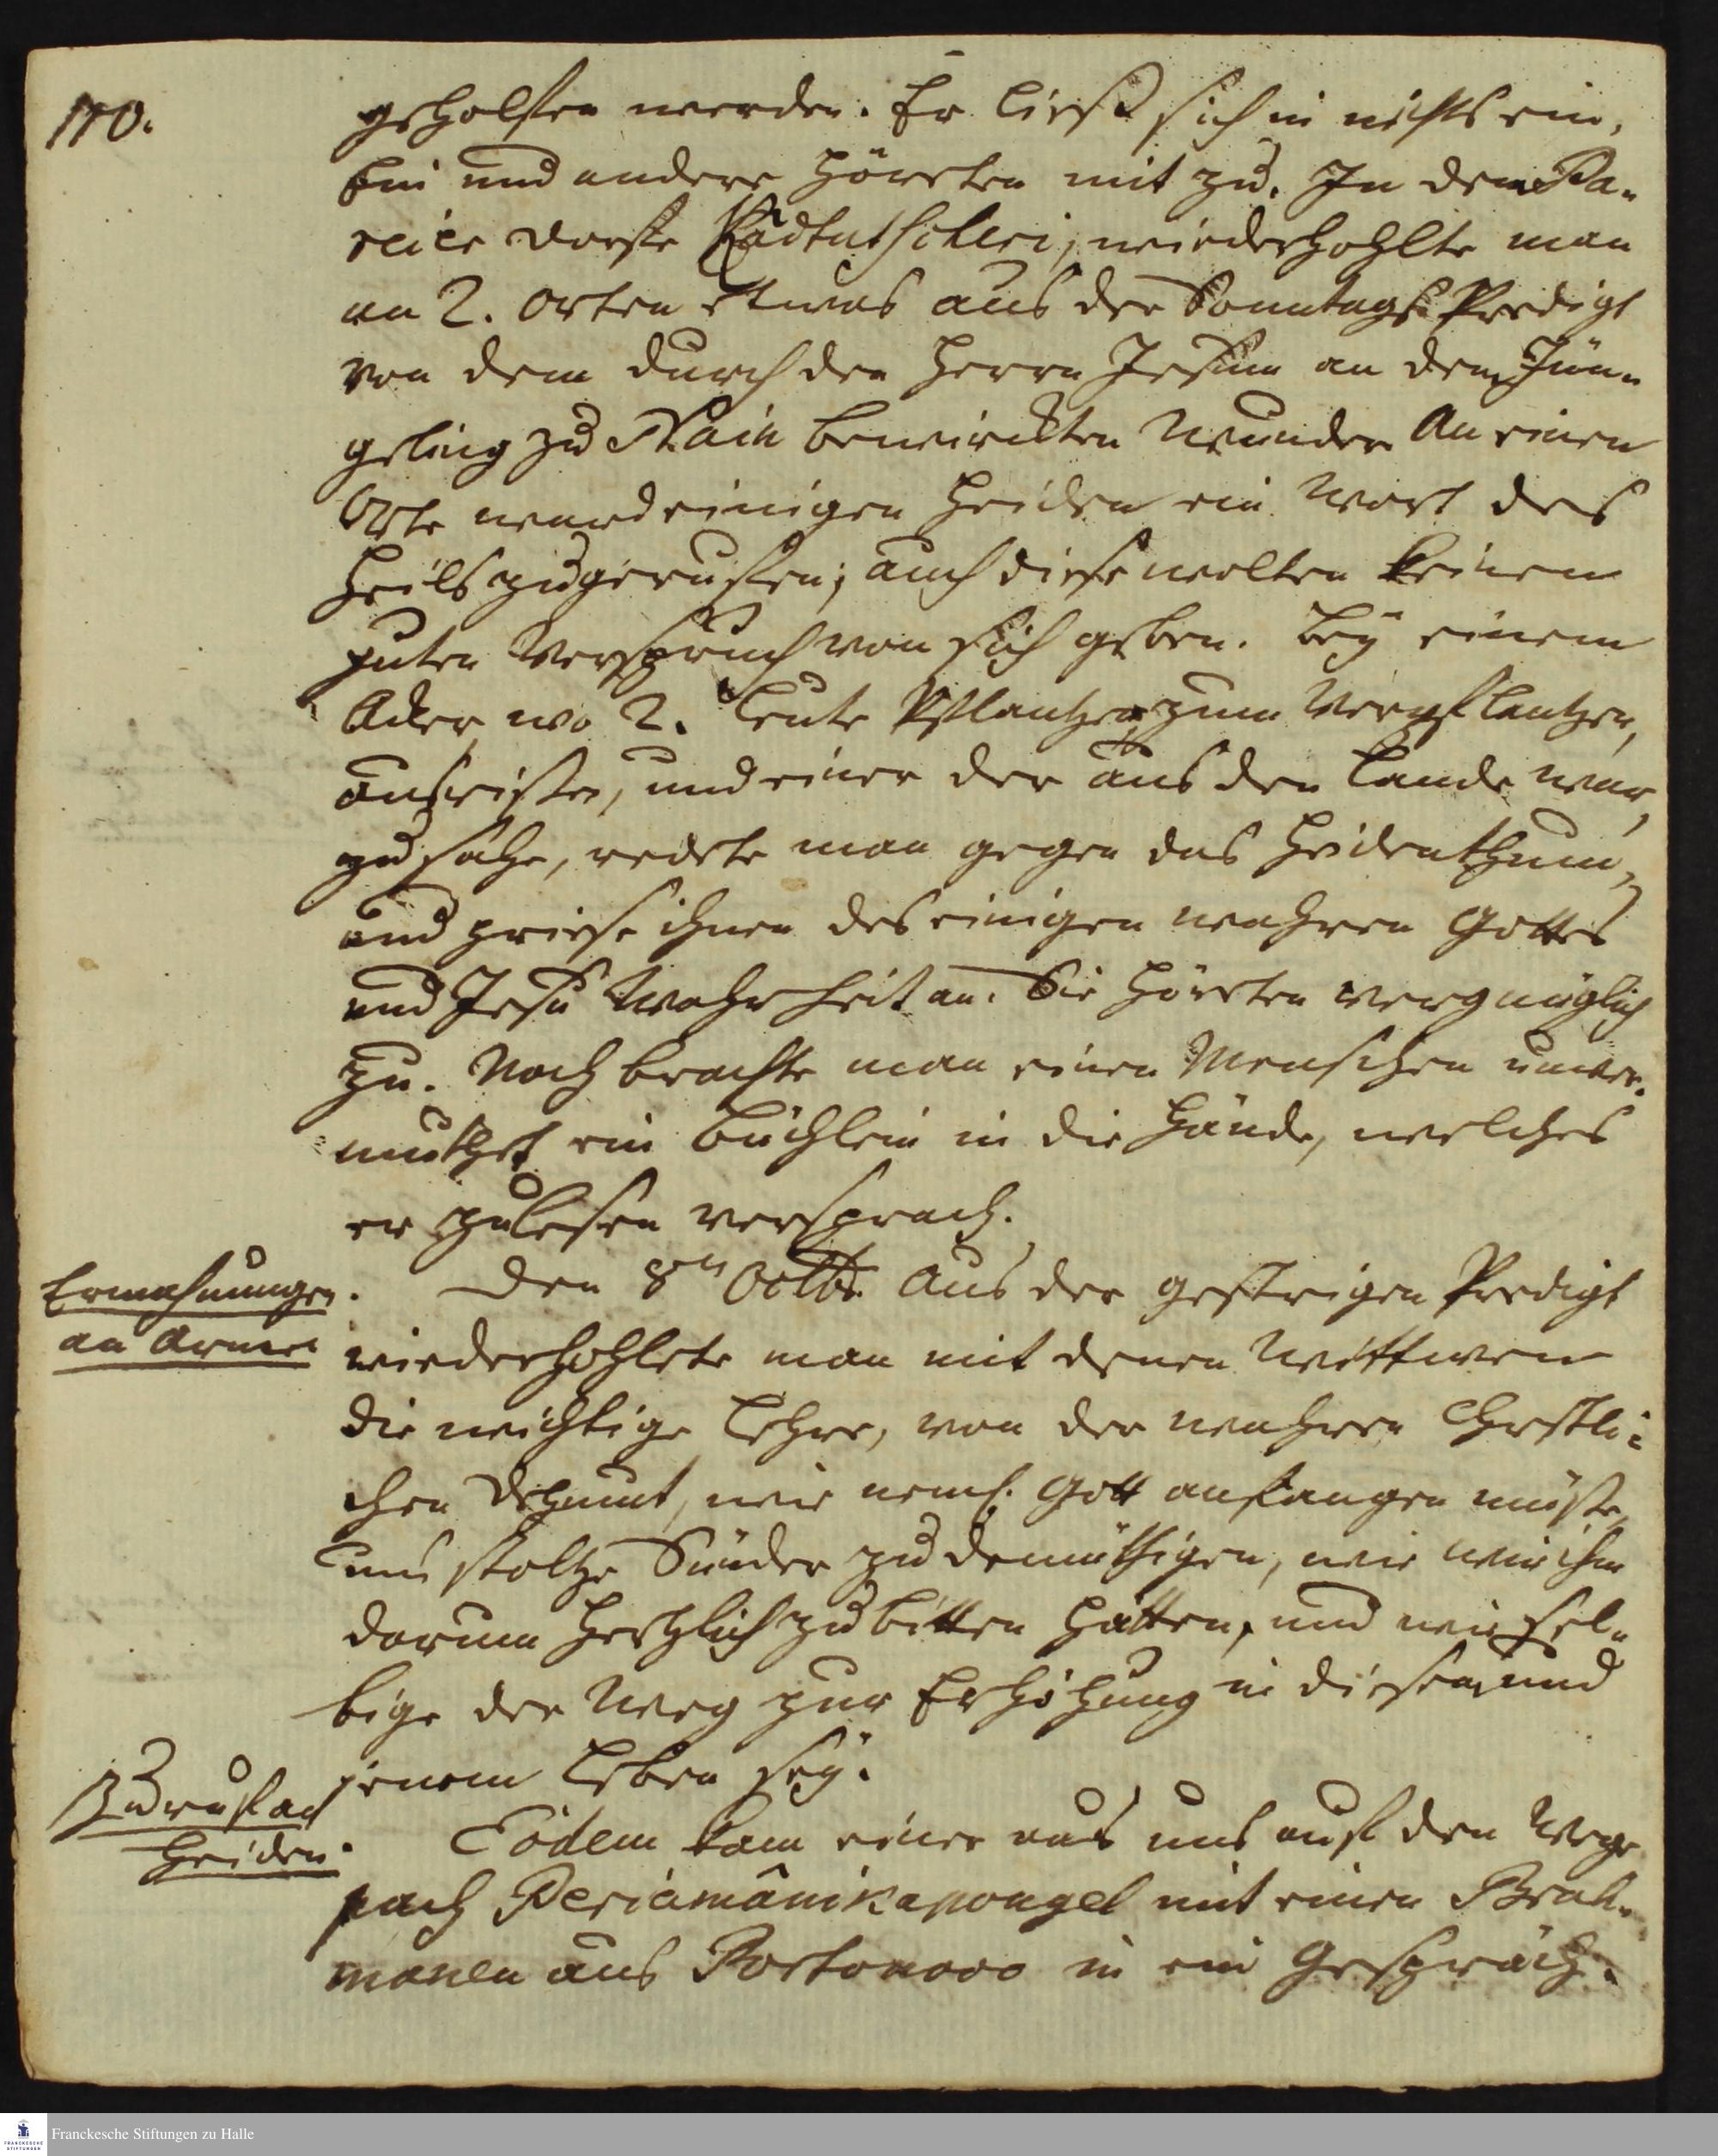 110.
geholfen werden. Er ließ sich in nichts ein,
Ein und andere höreten mit zu. In dem Pa-
reier Dorfe Kádtutscheri, wiederhohlte man
an 2. Orten etwas aus der Sonntags Predigt
von dem durch den Herrn Jesum an dem Jün-
geling zu Nain bewirckten Wunder. An einen
Orte ward einigen Heiden ein Wort des
Heils zugeruffen; auch diese wolten keinen
guten Verspruch von sich geben. Bey einem
Acker, wo 2. Leute Pflantzen zum Verpflantzen,
ausrißen, und einer der aus den Lande war,
zu sahe, redete man gegen das Heidenthum,
und priese ihnen des einigen wahren Gottes
und Jesu Wahrheit an. Sie höreten vergnüglich
zu. Noch brachte man einen Menschen unver-
muthet ein Büchlein in die Hände, welches
er zulesen versprach.
Ermahnungen
an Arme
Den 8ten Octbr. Aus der gestrigen Predigt
wiederhohlete man mit denen Wittwen
die wichtige Lehre, von der wahren Chrstli-
chen Demut, wie neml. Gott anfangen müste,
uns stoltze Sünder zu demüthigen, wie wir ihn
darum hertzlich zu bitten hätten, und wie sel-
bige der Weg zur Erhöhung in diesem und
jenem Leben sey.
Zuruf an
Heiden.
Eodem kam einer aus uns auf den Wege
nach Periamânikapongel mit einen Brah-
manen aus Portonovo in ein Gespräch.
Franckesche Stiftungen zu Halle